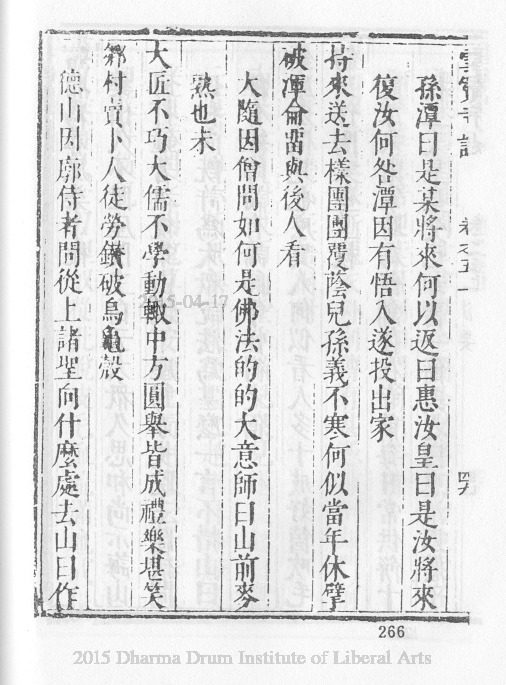 卷之五
孫潭曰是某將來何以返曰惠汝皇曰是汝將來
復汝何咎潭因有悟入遂投出家
持來送去樣團團覆蔭兒孫義不寒何似當年休擘
破渾侖留與後人看
大隨因僧問如何是佛法的的大意師曰山前麥
熟也未
大匠不巧大儒不學動輙中方圓舉皆成禮樂堪笑
鄉村賣卜人徒勞鑽破烏龜殼
德山因廓侍者問從上諸聖向什麼處去山曰作
266
2015 Dharma Drum Institute of Liberal Arts